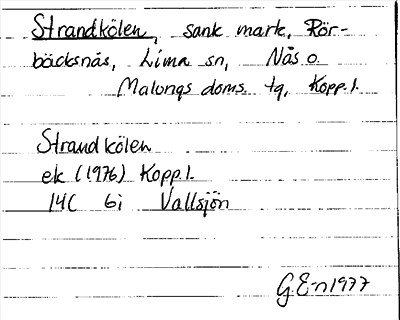 Strandkölen, sank mark, Rör-
bäcksnäs, Lima sn, Nås o.
Malungs doms. tg, Kopp. l.
Strandkölen
ek (1976) Kopp. l.
14C 6i Vallsjön
G.E-n 1977